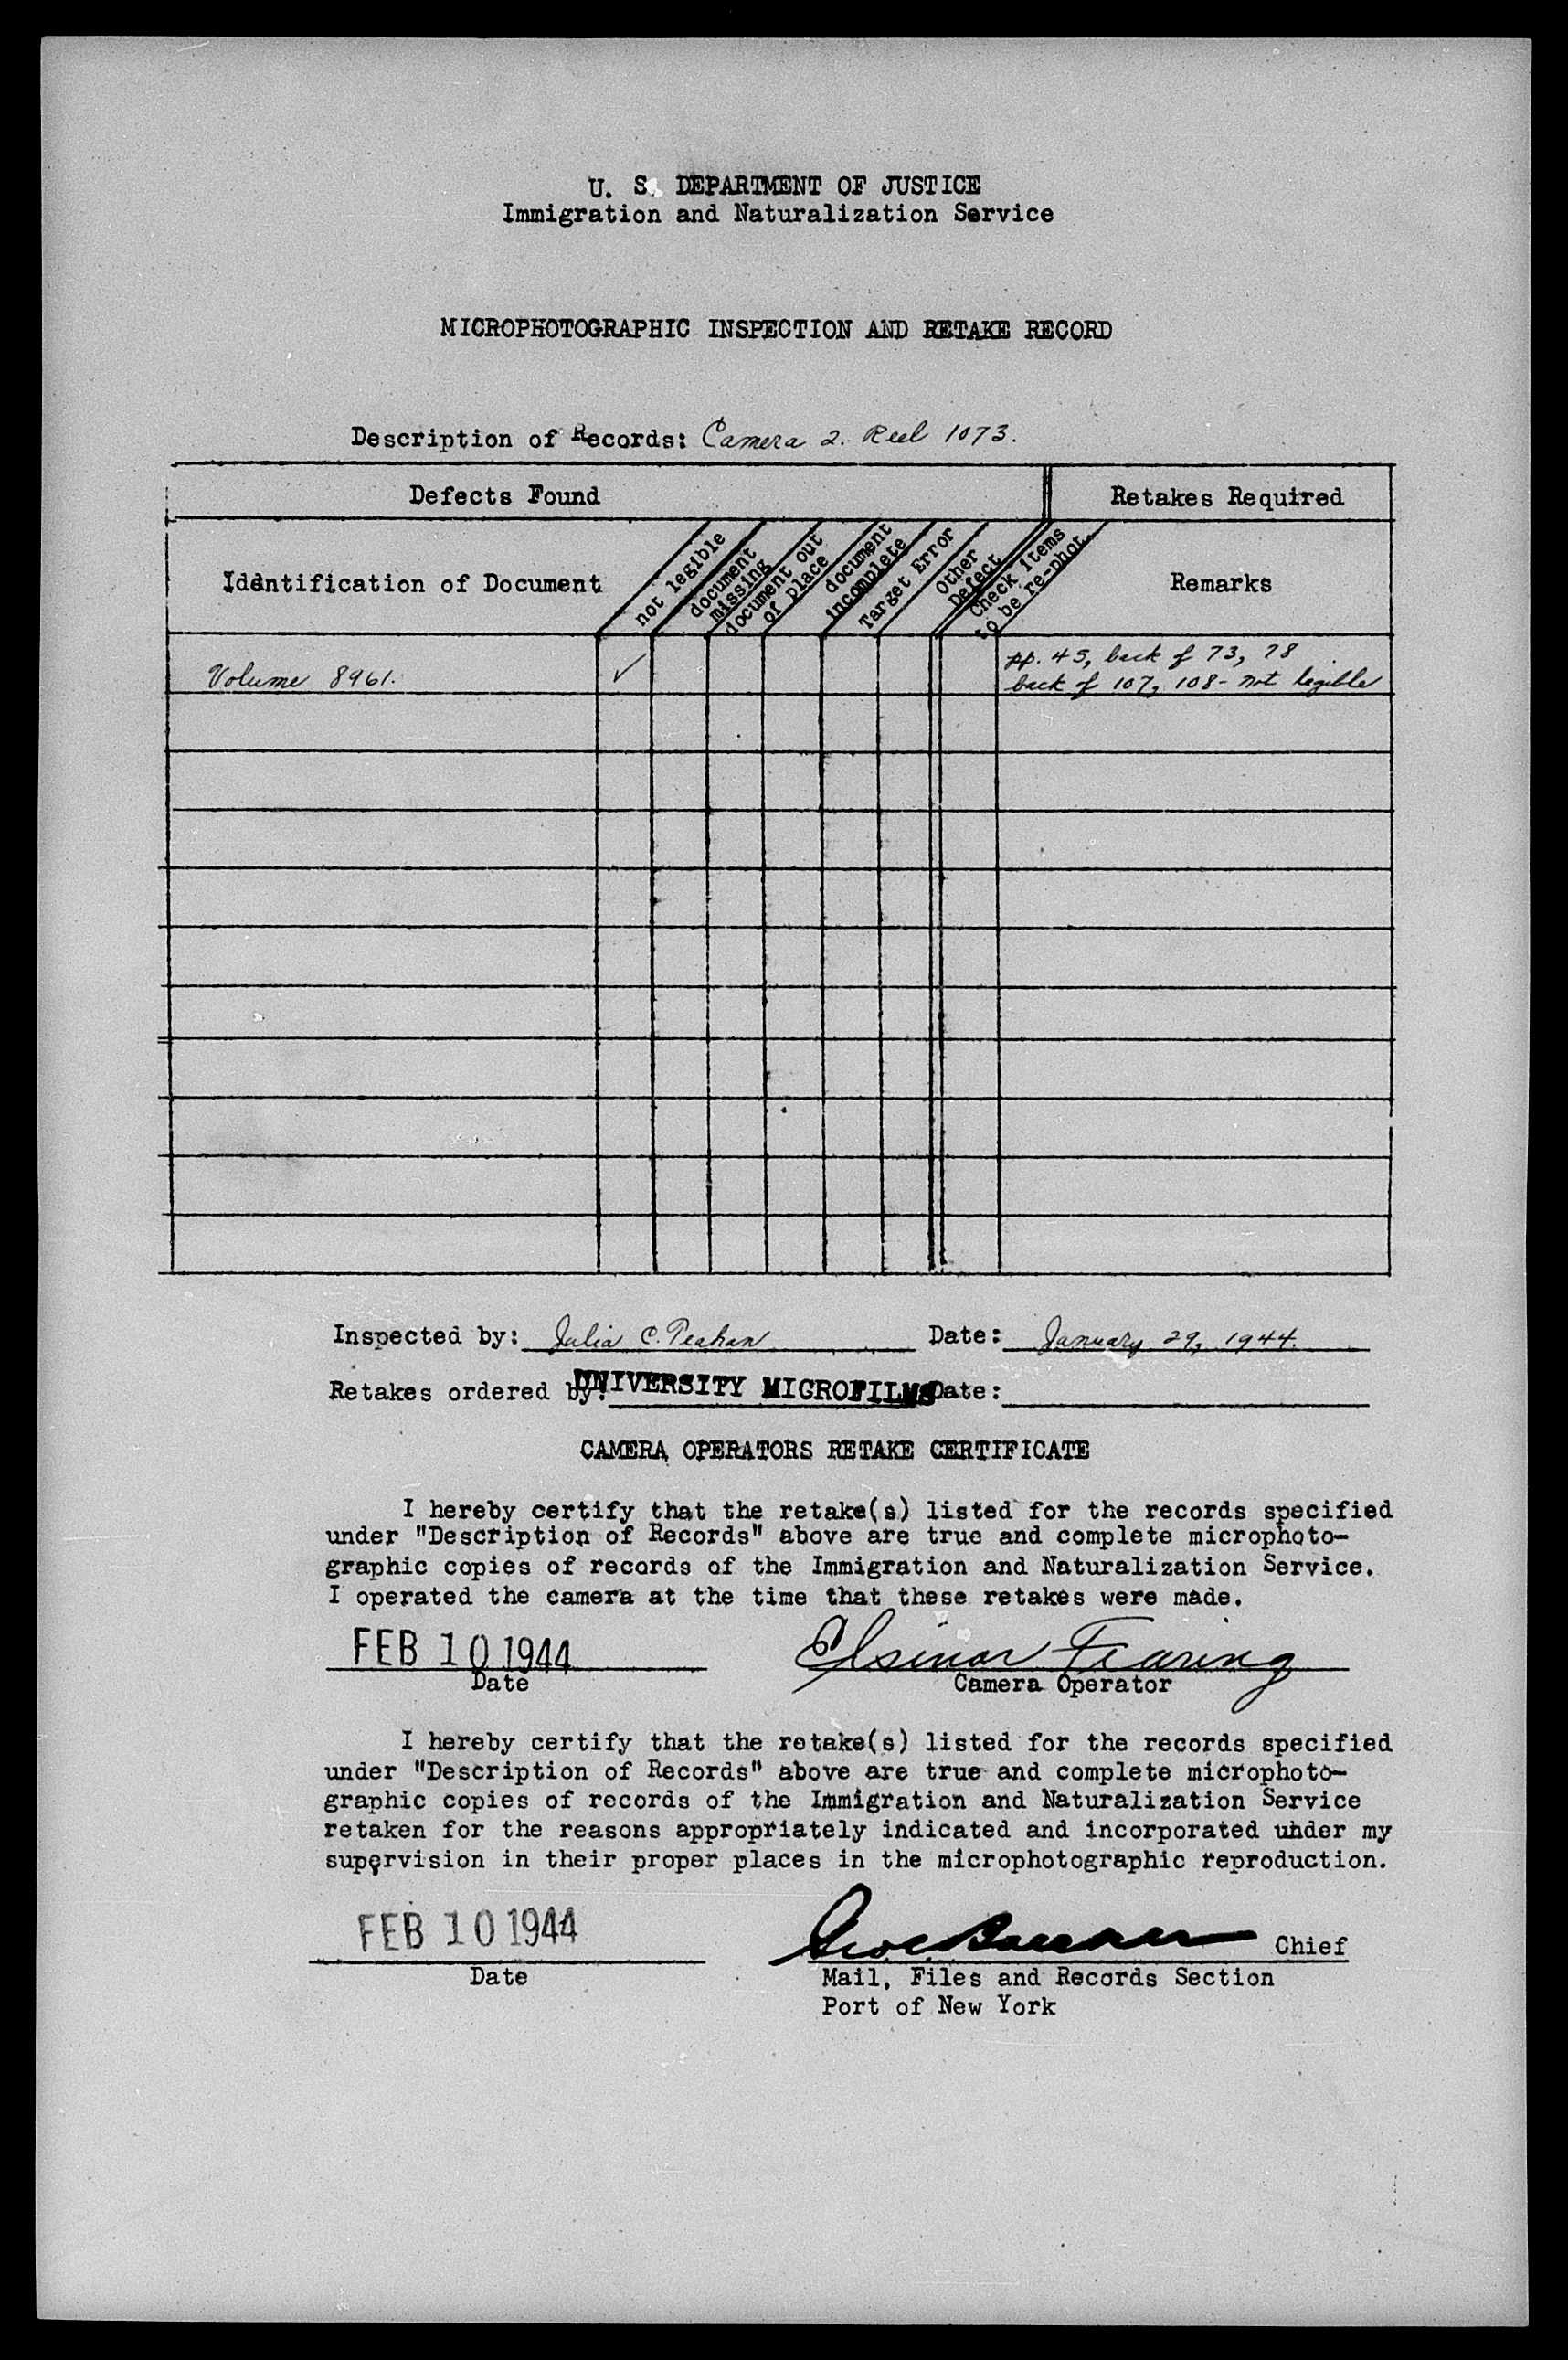 U. S. DEPARTMENT OF JUSTICE
Immigration and Naturalization Service
MICROPHOTOGRAPHIC INSPECTION AND RETAKE RECORD
Description of Records: Camera 2. Reel 1073.
Defects Found
Retakes Required
Identification of Document
not legible
document missing
document out of place
document incomplete
Target Error
Other Defect
Check items to be re-phot.
Remarks
Volume 8961. ✓ pp. 45, back of 73, 78
back of 107, 108- not legible
Inspected by: Julia C. Date: January 29, 1944.
Retakes ordered by: UNIVERSITY MICROFILMS Date:
CAMERA OPERATORS RETAKE CERTIFICATE
I hereby certify that the retake(s) listed for the records specified
under "Description of Records" above are true and complete microphoto-
graphic copies of records of the Immigration and Naturalization Service.
I operated the camera at the time that these retakes were made.
FEB 10 1944 Elsinor Fearing
Date Camera Operator
I hereby certify that the retake(s) listed for the records specified
under "Description of Records" above are true and complete microphoto-
graphic copies of records of the Immigration and Naturalization Service
retaken for the reasons appropriately indicated and incorporated under my
supervision in their proper places in the microphotographic reproduction.
FEB 10 1944 Chief
Date Mail, Files and Records Section
Port of New York